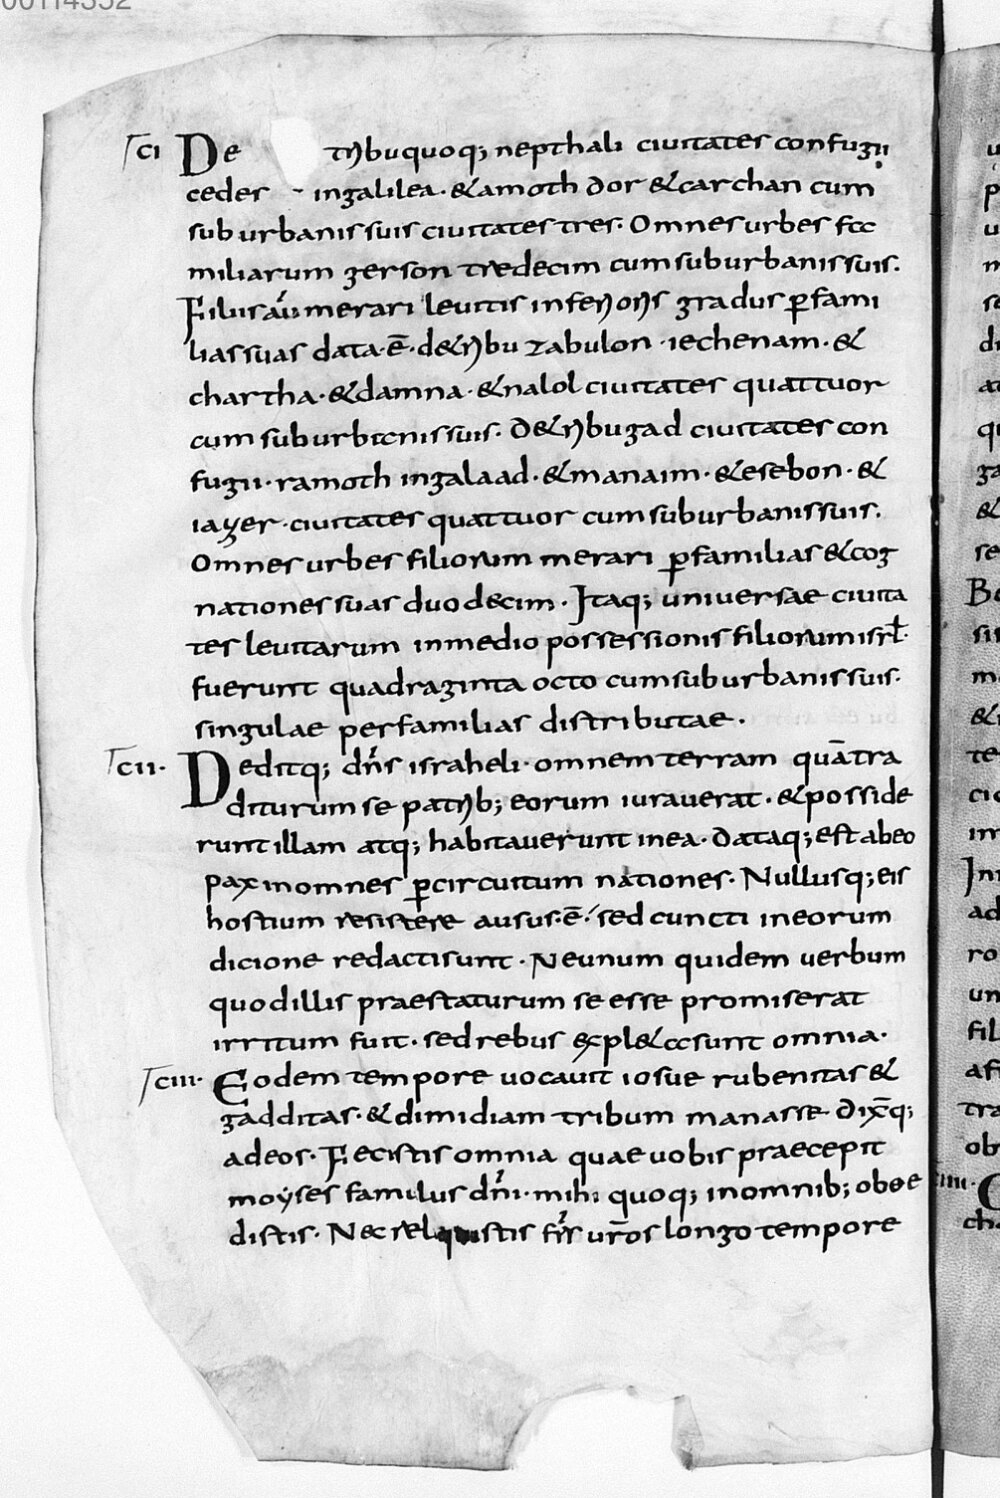 00114352
ci De tribu quoq; nepthali ciuitates confugii
ceder in galilea · & amoth dor & carchan cum
suburbanis suis ciuitates tres · Omnes urbes fa
miliarum gerson tredecim cum suburbanis suis.
Filiis aū merari leuitis inferioris gradus ꝑ fami
lias suas data · ē · de tribu zabulon · iechenam · &
chartha · & damna · & nalol ciuitates quattuor
cum suburbanis suis · De tribu gad ciuitates con
fugii · ramoth in galaad · & manaim · & esebon · &
iazer · ciuitates quattuor cum suburbanis suis.
Omnes urbes filiorum merari ꝑ familias & cog
nationes suas duodecim · Itaq; universae ciuita
tes leuitarum in medio possessionis filiorum isrł ·
fuerunt quadraginta octo cum suburbanis suis ·
singulae per familias distributae ·
cii · Deditq; dn̄s israheli · omnem terram quā tra
diturum se patrib; eorum iuraverat · & posside
runt illam atq; habitaverunt in ea · Dataq; est ab eo
pax in omnes ꝑ circuitum nationes · Nullusq; eis
hostium resistere ausus · ē · sed cuncti in eorum
dicione redacti sunt · Ne unum quidem uerbum
quod illis praestaturum se esse promiserat
irritum fuit · sed rebus expl&a sunt omnia ·
ciii · Eodem tempore uocauit iosue rubenitas &
gadditas · & dimidiam tribum manasse dix̄q;
ad eos · Fecistis omnia quae uobis praecepit
moyses famulus dn̄i · mihi quoq; in omnib; oboe
distis · Nec reliquistis fr̄s ur̄os longo tempore